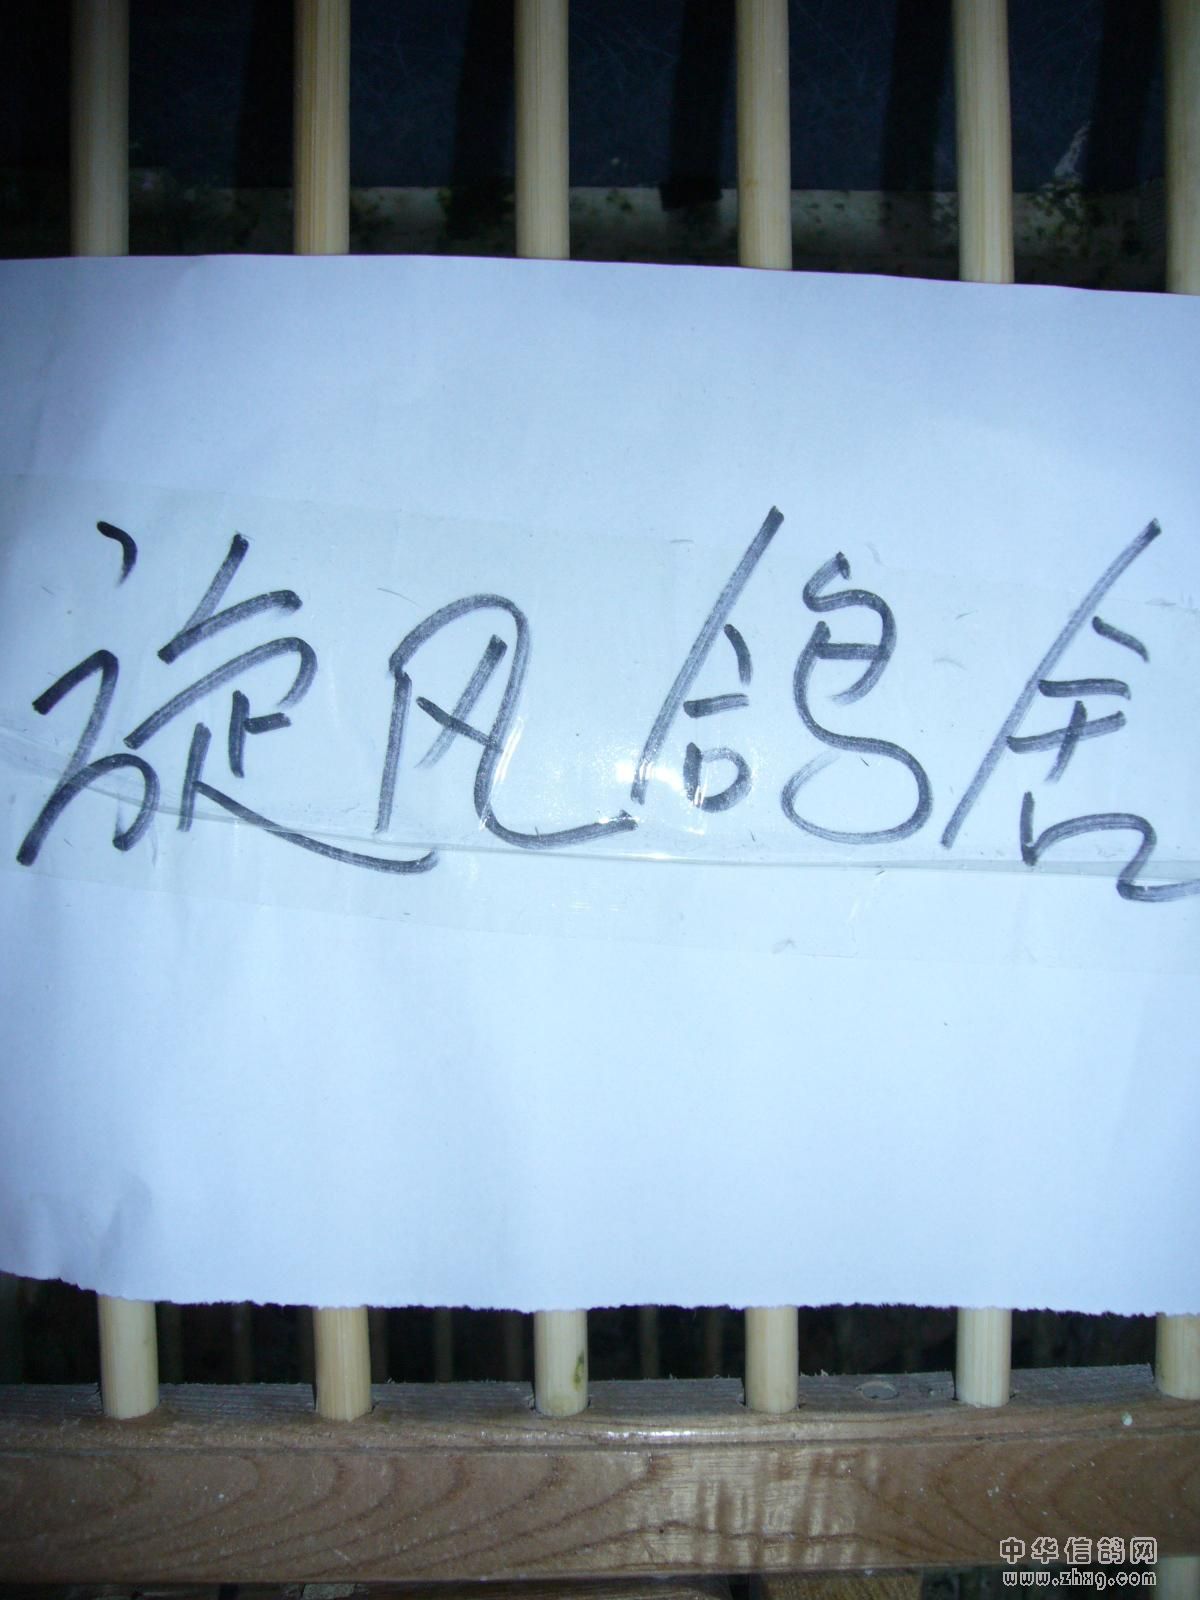 旋风鸽舍
中华信鸽网
www.zhxg.com